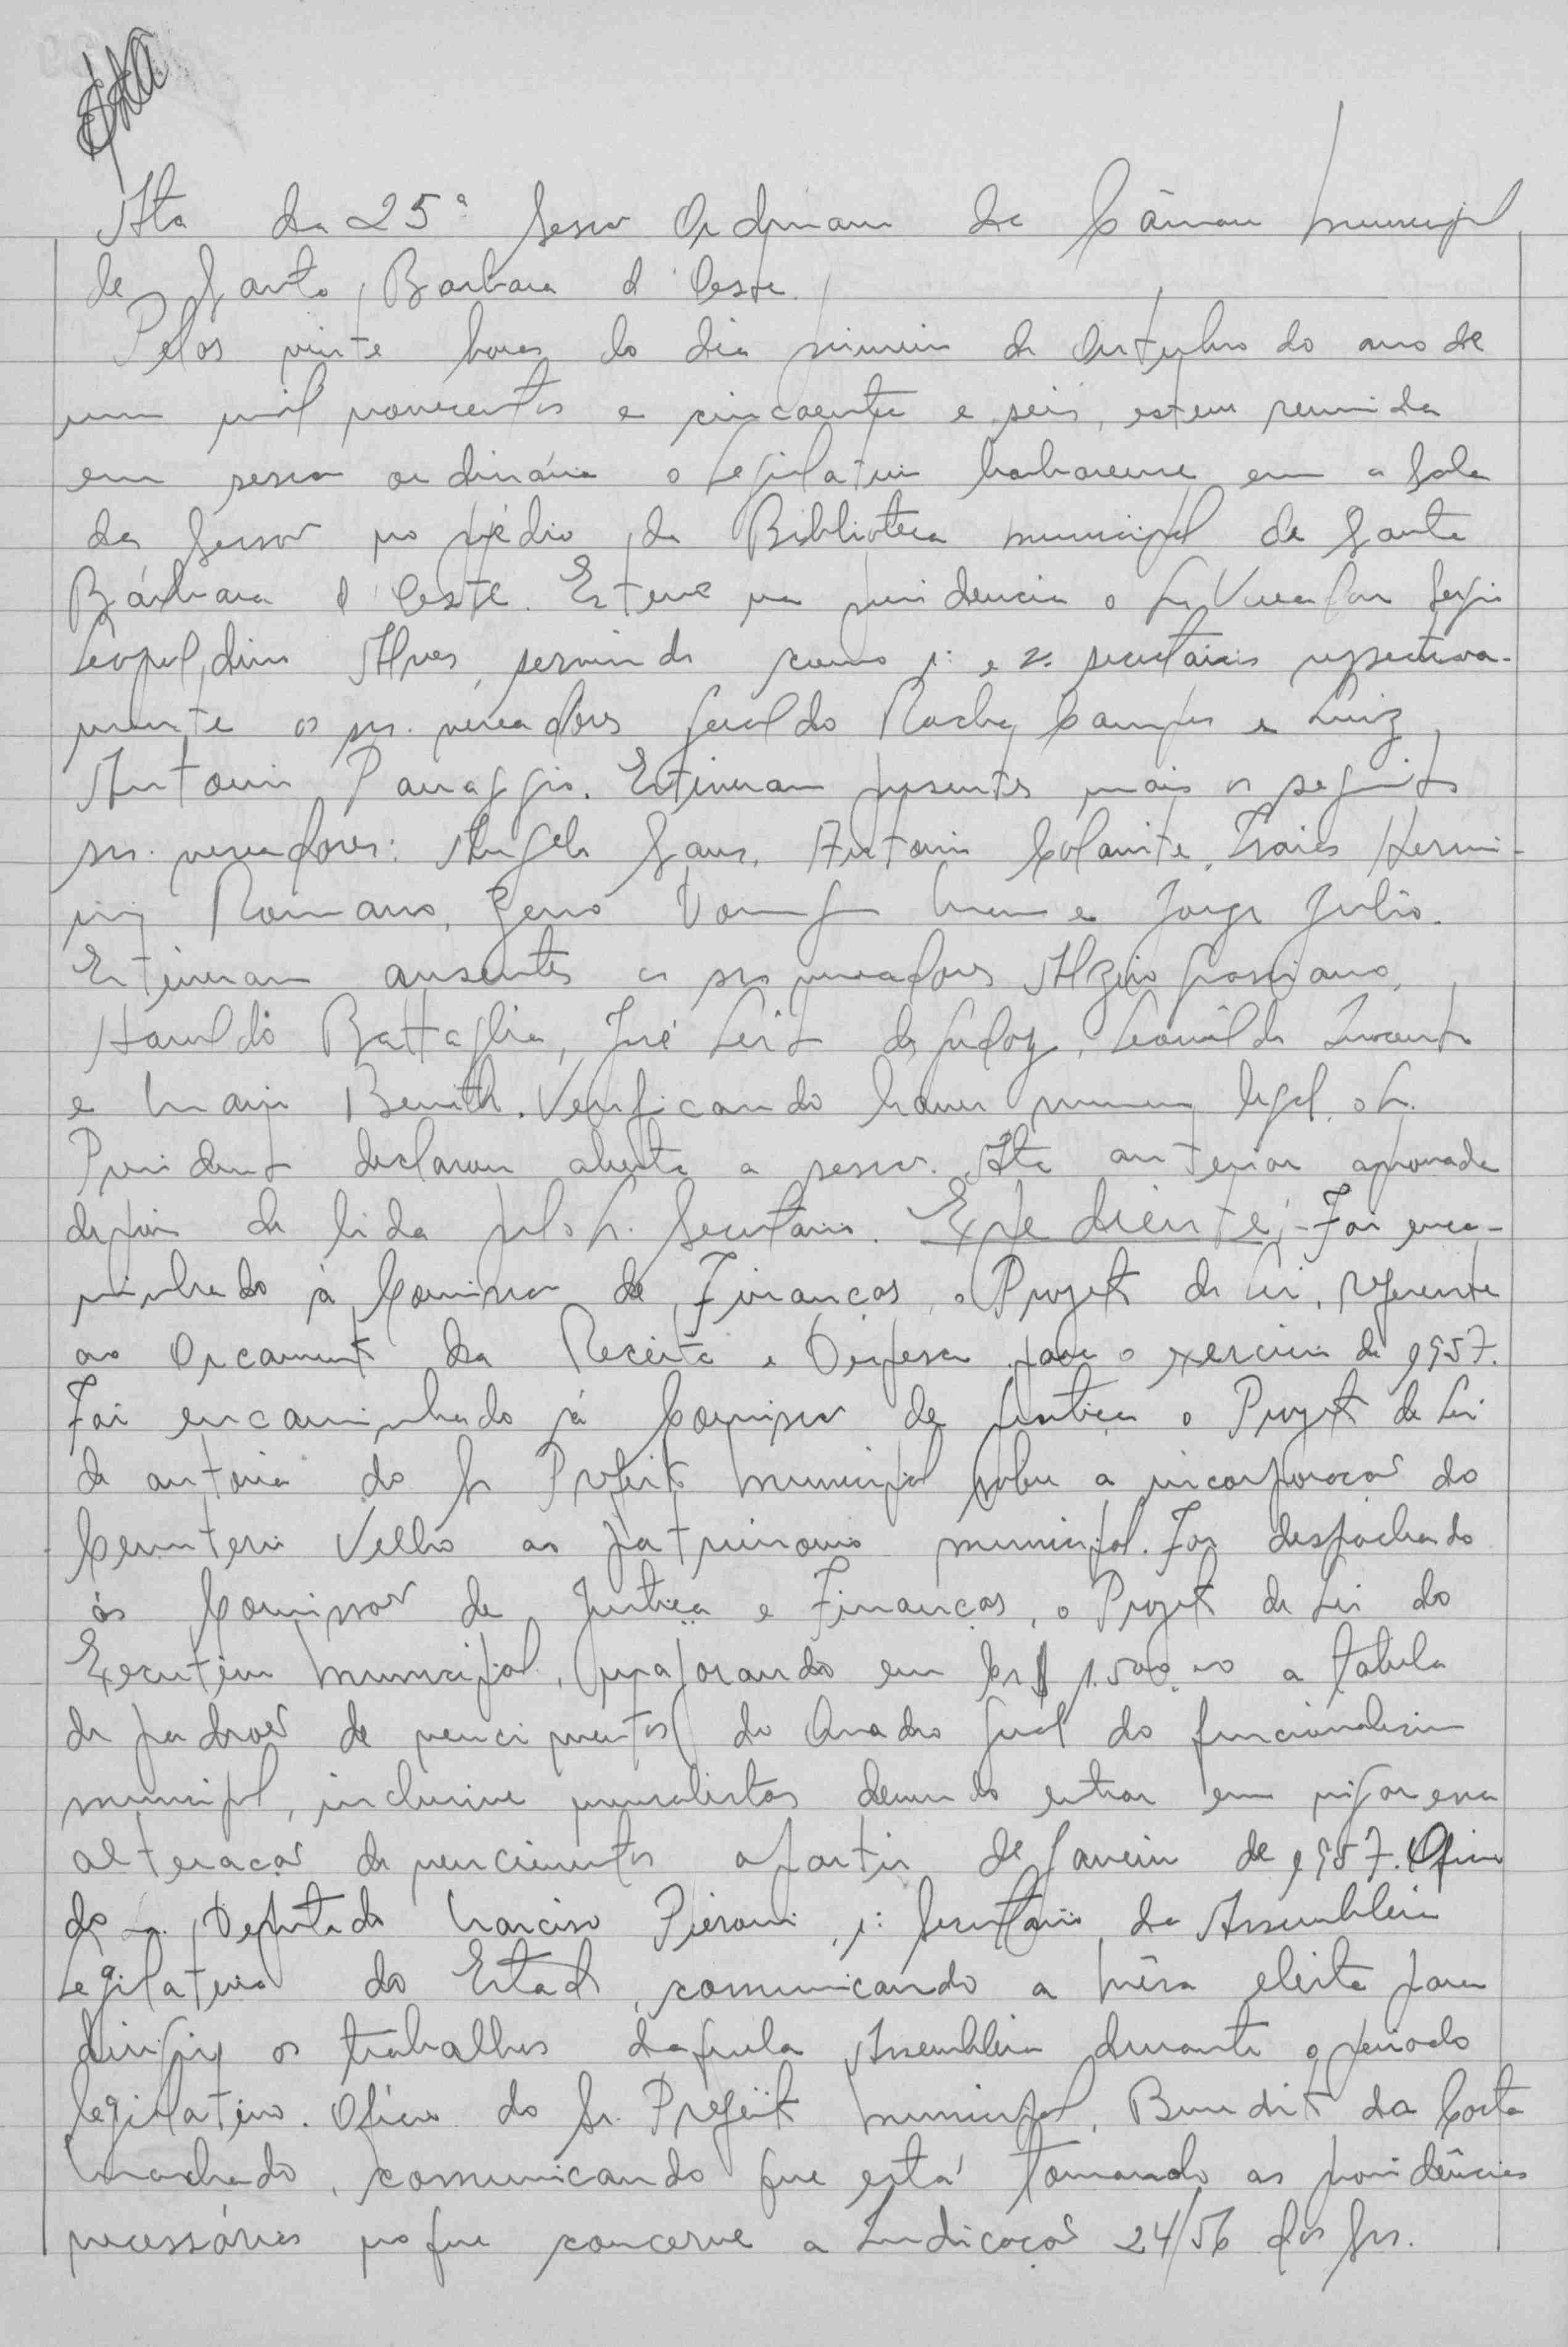 Ata da 25ª Sessão Ordinaria da Câmara Municipal
de Santa Barbara d'Oeste.
Pelas vinte horas do dia primeiro de Outubro do ano de
um mil novecentos e cincoenta e seis, esteve reunida
em sessão ordinária o Legislativo barbarense em a Sala
das Sessões no prédio da Biblioteca municipal de Santa
Bárbara d'Oeste. Esteve na presidencia o Sr. Vereador Sergio
Leopoldino Alves, servindo como 1º e 2º secretários respectiva-
mente os srs. vereadores Geraldo Rocha Campos e Luiz
Antonio Panaggio. Estiveram presentes mais os seguintes
srs. vereadores: Angelo Sans, Antonio Colamite, Isaias Hermi-
nio Romano, e Jorge Julio.
Estiveram ausentes os srs vereadores Alzeio Grassiano,
Haroldo Battaglia, José Leite de Godoy, Leonildo
e Mario Benith. Verificando haver numero legal, o Sr.
Presidente declarou aberta a sessão. Ata anterior aprovada
depois de lida pelo Sr. Secretario. Expediente: - Foi enca-
minhado à Comissão de Finanças, o Projeto de Lei, referente
ao Orcamento da Receita e Despesa para o exercicio de 1957.
Foi encaminhado à Comissão de Justiça o Projeto de Lei
de autoria do Sr Prefeito Municipal sobre a incorporação do
Cemiterio Velho ao patrimonio municipal. Foi despachado
ás Comissões de Justiça e Finanças, o Projeto de Lei do
Executivo Municipal, majorando em Cr$ 1.500,00 a tabela
de padrões de vencimentos do Quadro Geral do funcionalismo
municipal, inclusive mensalistas devendo entrar em vigor essa
alteração de vencimentos a partir de Janeiro de 1957. Oficio
do sr. Deputado Narciso Pieroni, 1º Secretário da Assembléia
Legislativa do Estado, comunicando a Mêsa eleita para
dirigir os trabalhos daquela Assembléia durante o periodo
legislativo. Oficio do Sr. Prefeito Municipal, Benedito da Costa
Machado, comunicando que está tomando as providências
necessárias no que concerne a Indicação 24/56 dos Srs.